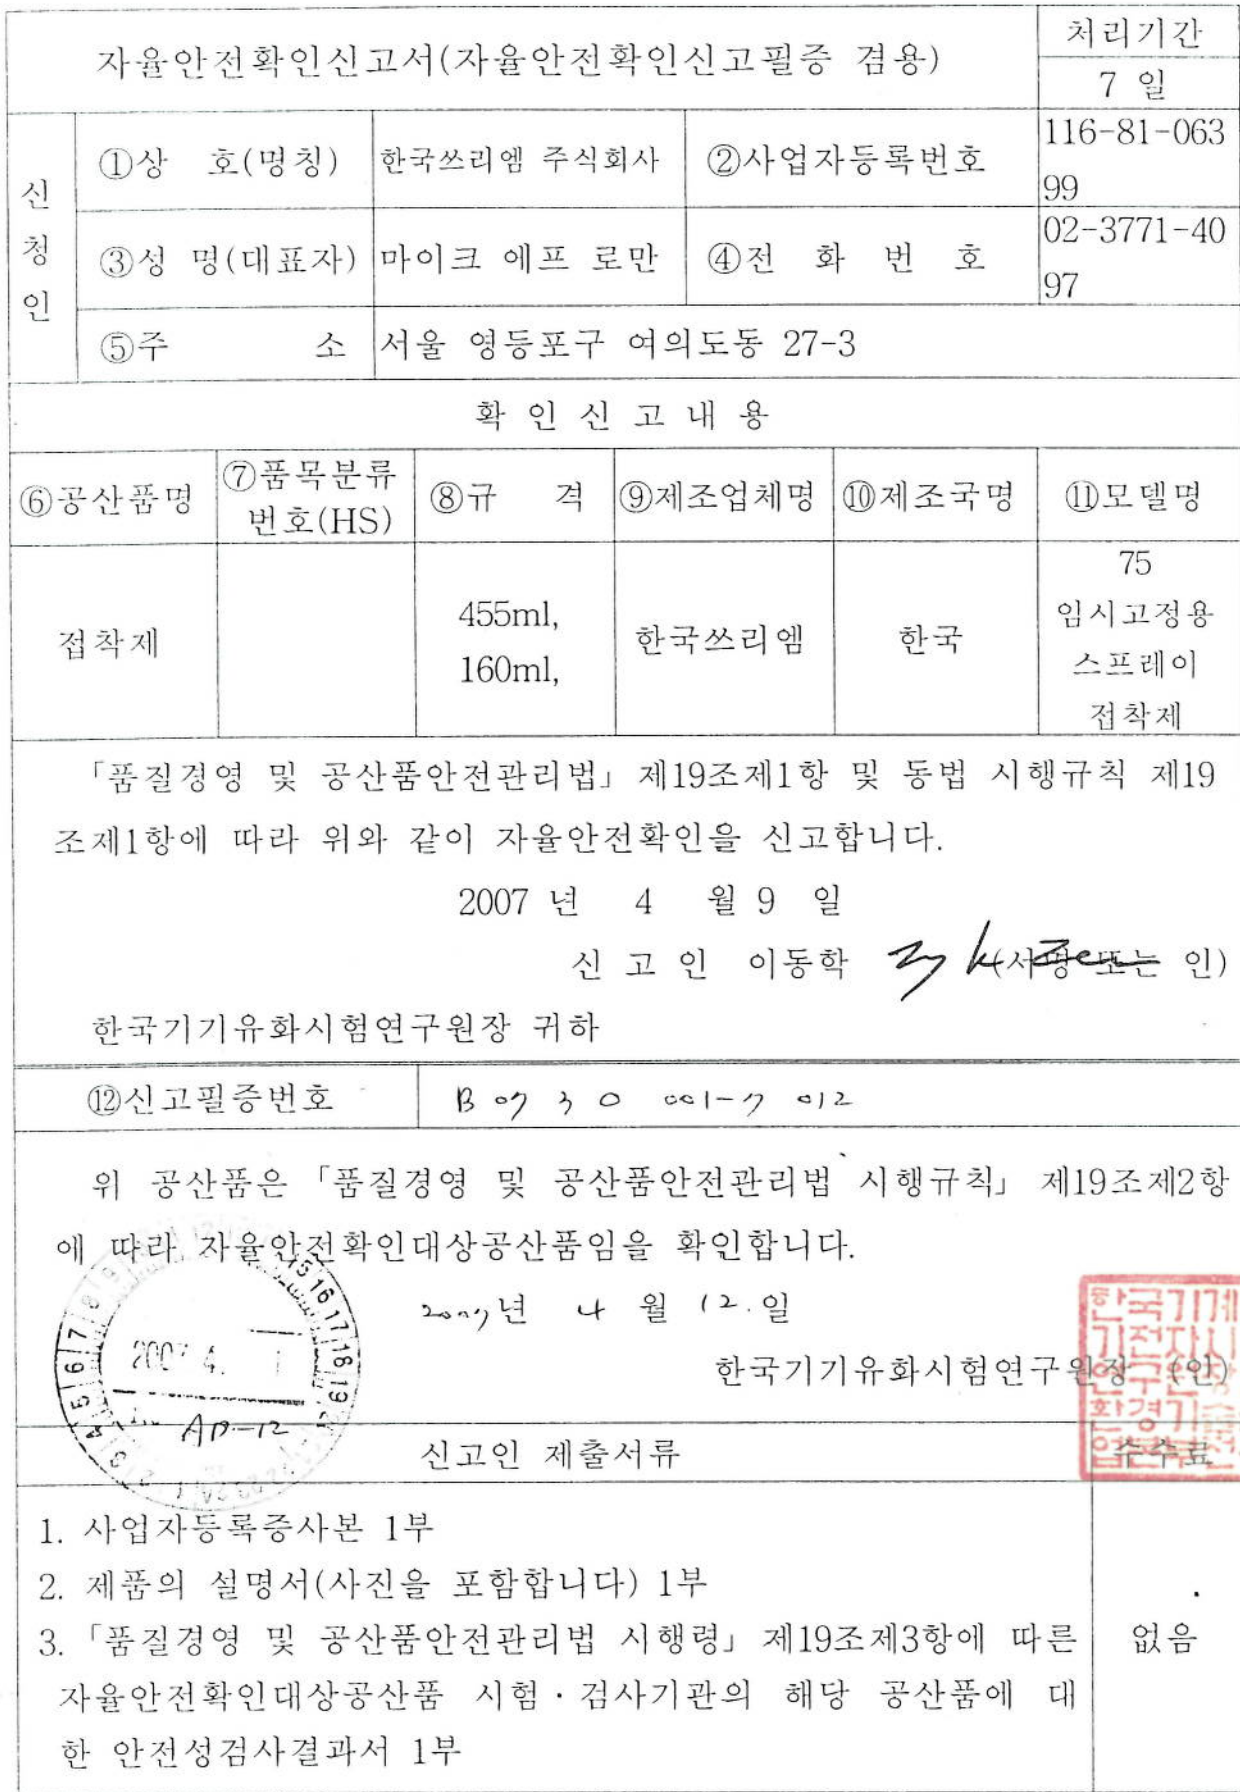 자율안전확인신고서(자율안전확인신고필증 겸용)
처리기간
7 일
신청인
①상 호(명칭)
한국쓰리엠 주식회사
②사업자등록번호
116-81-063
99
③성 명(대표자)
마이크 에프 로만
④전 화 번 호
02-3771-40
97
⑤주 소
서울 영등포구 여의도동 27-3
확 인 신 고 내 용
⑥공산품명
⑦품목분류
번호(HS)
⑧규 격
⑨제조업체명
⑩제조국명
⑪모델명
접착제
455ml,
160ml,
한국쓰리엠
한국
75
임시고정용
스프레이
접착제
「품질경영 및 공산품안전관리법」 제19조제1항 및 동법 시행규칙 제19
조제1항에 따라 위와 같이 자율안전확인을 신고합니다.
2007 년 4 월 9 일
신 고 인 이동학 (서명 또는 인)
한국기기유화시험연구원장 귀하
⑫신고필증번호
B 07 3 0 001-7 012
위 공산품은 「품질경영 및 공산품안전관리법 시행규칙」 제19조제2항
에 따라 자율안전확인대상공산품임을 확인합니다.
2007년 4 월 12.일
한국기기유화시험연구원장 (인)
2007. 4.
AP-12
신고인 제출서류
수수료
1. 사업자등록증사본 1부
2. 제품의 설명서(사진을 포함합니다) 1부
3.「품질경영 및 공산품안전관리법 시행령」 제19조제3항에 따른
자율안전확인대상공산품 시험·검사기관의 해당 공산품에 대
한 안전성검사결과서 1부
없음